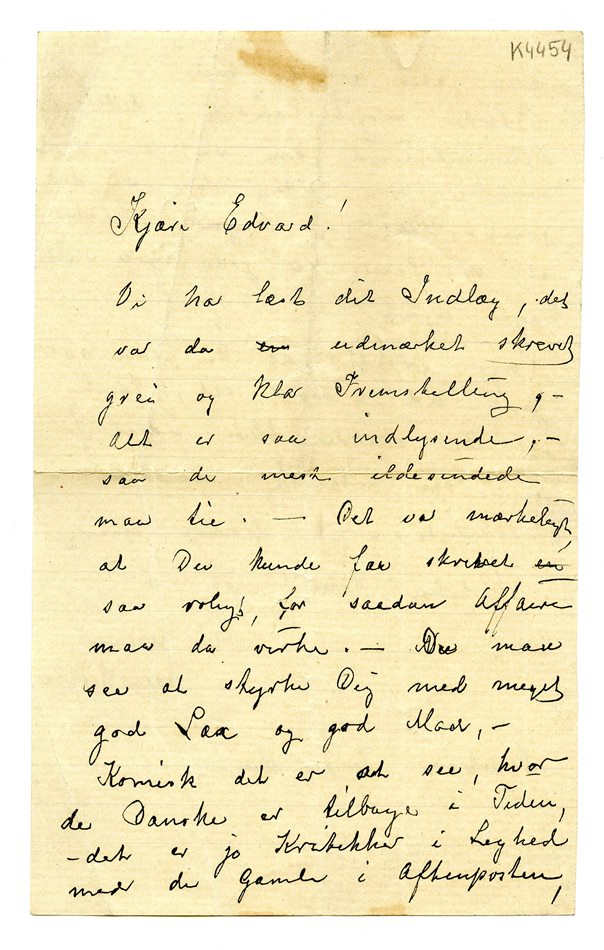 K4454
Kjære Edvard!
Vi har læst dit Indlæg, det
var da udmærket skrevet
grei og klar Fremstilling, –
Alt er saa indlysende, –
saa de mest ildesindede
maa tie. – Det var mærkeligt,
at Du kunde faa skrevet
saa roligt, for saadan Affaire
maa da virke. – Du maa
see at styrke Dig med meget
god og god Mad, –
Komisk det er at see, hvor
de Danske er tilbage i Tiden,
– det er jo Kritikker i Leghed
med de Gamle i Aftenposten,